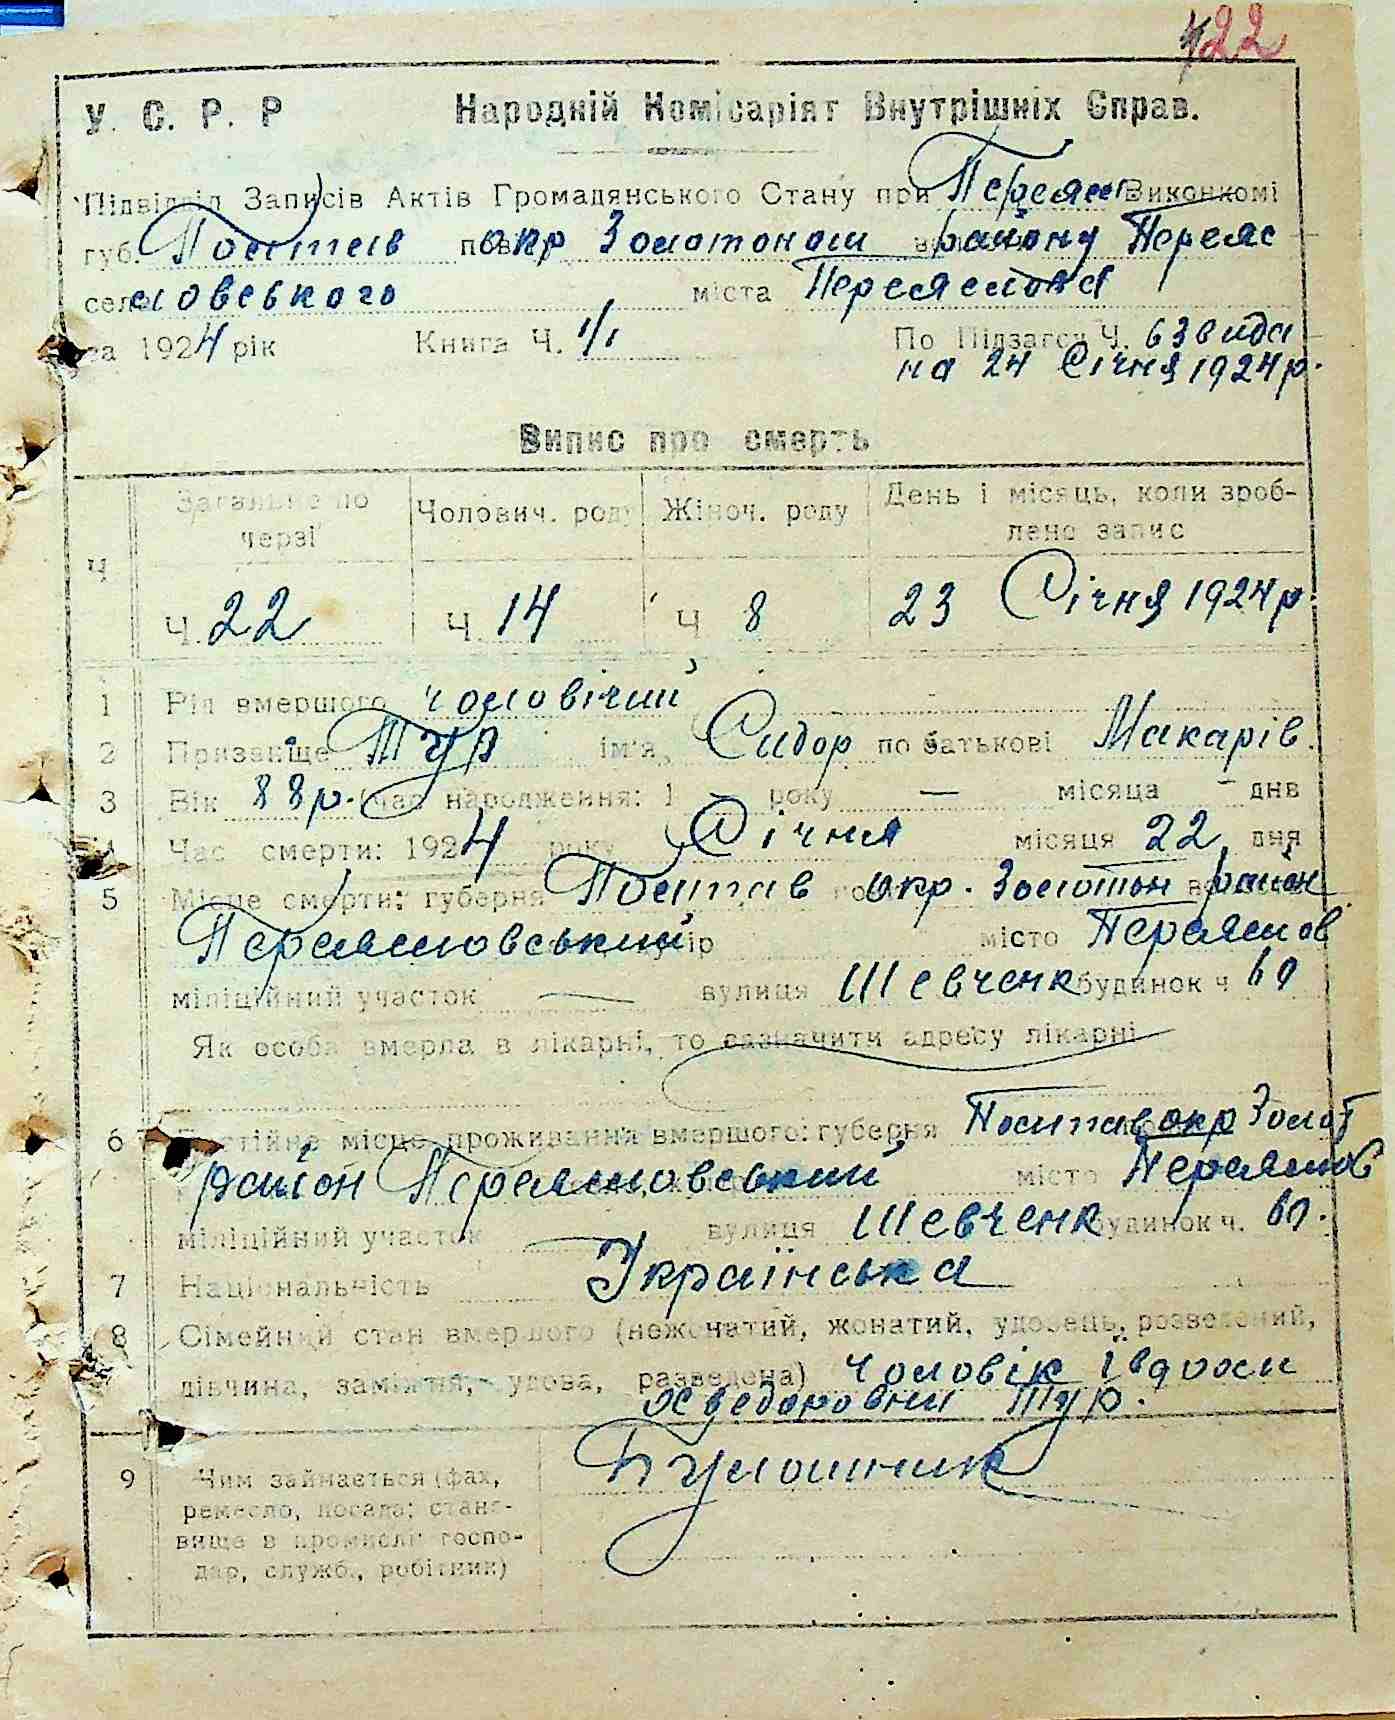 422
У. С. Р. Р Народній Комісаріят Внутрішніх Справ.
Підвідділ Записів Актів Громадянського Стану при Переяс Виконкомі
губ. Полтав пов окр Золотонош району Переяс
село ловського міста Переяслова
за 1924 рік Книга Ч. 1/1 По Підзагсу Ч.
на 24 Січня 1924 р.
Випис про смерть
Загальне по черзі Чолович. роду Жіноч. роду День і місяць, коли зроб-
лено запис
Ч
Ч. 22 Ч 14 Ч 8 23 Січня 1924 р
1 Рід вмершого чоловічий
2 Призвіще Тур ім'я Сидор по батькові Макарів.
3 Вік 88 р. час народження: 1 — року — місяца — днв
4 Час смерти: 1924 року Січня місяця 22 дня
5 Місце смерти: губерня Полтав окр. Золотон район
Переяславський місто Переяслов
міліційний участок — вулиця Шевченк будинок ч 60
Як особа вмерла в лікарні, то зазначити адресу лікарні
6 Постійне місце проживання вмершого: губерня Полтав окр Золот
район Переяславський місто Переяслов
міліційний участок — вулиця Шевченк будинок ч. 60.
7 Національність Українська
8 Сімейний стан вмершого (нежонатий, жонатий, удовець, розведений,
дівчина, заміжня, удова, разведена) чоловік Івдохи
Хведоровни Тур.
9 Чим займається (фах, Булошник
ремесло, посада; стано-
вище в промислі: госпо-
дар, служб., робітник)